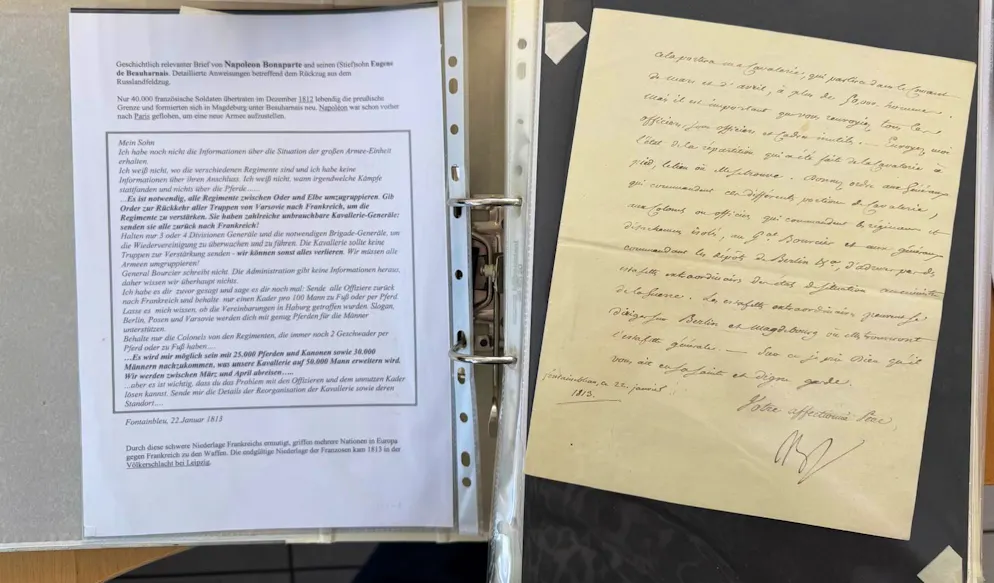 Geschichtlich relevanter Brief von Napoleon Bonaparte und seinen (Stief)sohn Eugens
de Beauharnais. Detailierte Anweisungen betreffend dem Rückzug aus dem
Russlandfeldzug.
Nur 40.000 französische Soldaten übertraten im Dezember 1812 lebendig die preußische
Grenze und formierten sich in Magdeburg unter Beauharnais neu. Napoleon war schon vorher
nach Paris geflohen, um eine neue Armee aufzustellen.
Mein Sohn
Ich habe noch nicht die Informationen über die Situation der großen Armee-Einheit
erhalten.
Ich weiß nicht, wo die verschiedenen Regimente sind und ich habe keine
Informationen über ihren Anschluss. Ich weiß nicht, wann irgendwelche Kämpfe
stattfanden und nichts über die Pferde......
...Es ist notwendig, alle Regimente zwischen Oder und Elbe umzugruppieren. Gib
Order zur Rückkehr aller Truppen von Varsovie nach Frankreich, um die
Regimente zu verstärken. Sie haben zahlreiche unbrauchbare Kavallerie-Generäle:
senden sie alle zurück nach Frankreich!
Halten nur 3 oder 4 Divisionen Generäle und die notwendigen Brigade-Generäle, um
die Wiedervereinigung zu überwachen und zu führen. Die Kavallerie sollte keine
Truppen zur Verstärkung senden - wir können sonst alles verlieren. Wir müssen alle
Armeen umgruppieren!
General Bourcier schreibt nicht. Die Administration gibt keine Informationen heraus,
daher wissen wir überhaupt nichts.
Ich habe es dir zuvor gesagt und sage es dir noch mal: Sende alle Offiziere zurück
nach Frankreich und behalte nur einen Kader pro 100 Mann zu Fuß oder per Pferd
Lasse es mich wissen, ob die Vereinbarungen in Haburg getroffen wurden. Slogan,
Berlin, Posen und Varsovie werden dich mit genug Pferden für die Männer
unterstützen.
Behalte nur die Colonels von den Regimenten, die immer noch 2 Geschwader per
Pferd oder zu Fuß haben....
...Es wird mir möglich sein mit 25.000 Pferden und Kanonen sowie 30.000
Männern nachzukommen, was unsere Kavallerie auf 50.000 Mann erweitern wird.
Wir werden zwischen März und April abreisen.....
...aber es ist wichtig, dass du das Problem mit den Offizieren und dem unnutzen Kader
lösen kannst. Sende mir die Details der Reorganisation der Kavallerie sowie deren
Standort....
Fontainbleu, 22.Januar 1813
Durch diese schwere Niederlage Frankreichs ermutigt, griffen mehrere Nationen in Europa
gegen Frankreich zu den Waffen. Die endgültige Niederlage der Franzosen kam 1813 in der
Völkerschlacht bei Leipzig.
de la cavalerie, qui partira dans le courant
de mars et d'avril, à plus de 50,000 hommes.
Mais il est important que vous renvoyiez tous les
officiers, sous officiers et cadres inutiles. Envoyez moi
l'état de la répartition qui a été fait de la cavalerie à
pied, le lieu où elle se trouve. Donnez ordre aux généraux
qui commandent ces différents parties de cavalerie,
aux Colonels ou officiers qui commandent les régimens et
détachemens isolés, au Gal. Bourcier et aux généraux
commandant les dépôts de Berlin &a, d'adresser par des
estafettes extraordinaires des états de situation au ministre
de la guerre. Ces estafettes extraordinaires peuvent se
diriger sur Berlin et Magdebourg où elles trouveront
l'estafette générale. Sur ce je prie Dieu qu'il
vous ait en sa sainte et digne garde.
fontainebleau, ce 22. janvier
1813.
Votre affectionné Père,